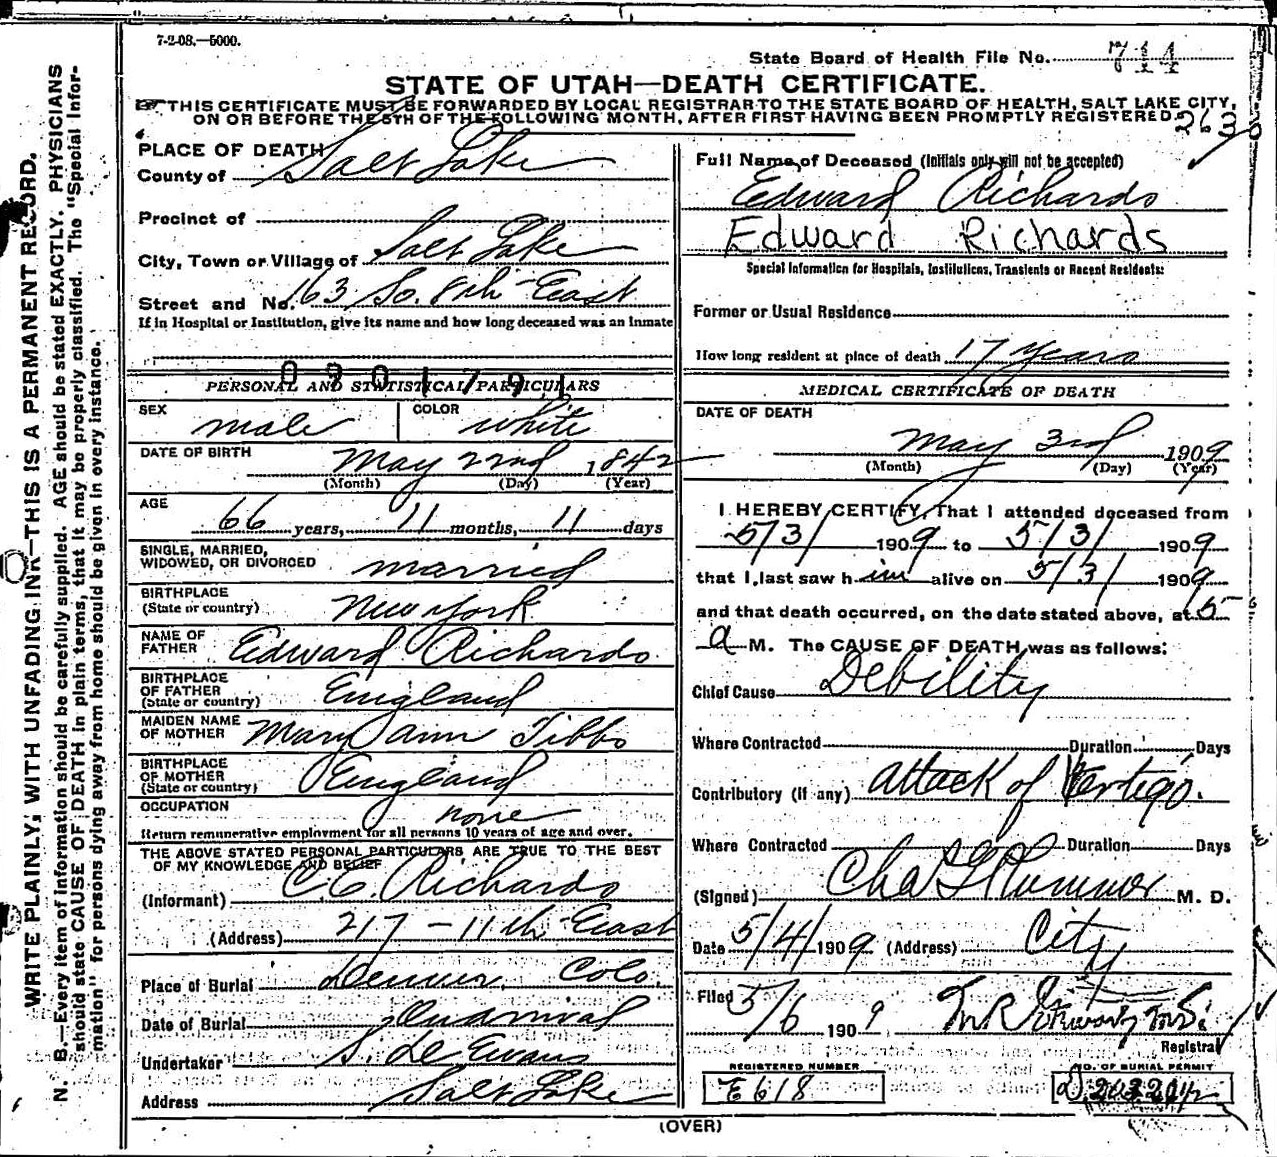 7-2-08.—5000.
State Board of Health File No. 714
STATE OF UTAH—DEATH CERTIFICATE.
THIS CERTIFICATE MUST BE FORWARDED BY LOCAL REGISTRAR TO THE STATE BOARD OF HEALTH, SALT LAKE CITY,
ON OR BEFORE THE 5TH OF THE FOLLOWING MONTH, AFTER FIRST HAVING BEEN PROMPTLY REGISTERED.
263
WRITE PLAINLY, WITH UNFADING INK—THIS IS A PERMANENT RECORD.
N. B.—Every item of information should be carefully supplied. AGE should be stated EXACTLY. PHYSICIANS
should state CAUSE OF DEATH in plain terms, that it may be properly classified. The "Special Infor-
mation" for persons dying away from home should be given in every instance.
PLACE OF DEATH
County of Salt Lake
Precinct of
City, Town or Village of Salt Lake
Street and No. 163 So. 8th East
If in Hospital or Institution, give its name and how long deceased was an inmate
PERSONAL AND STATISTICAL PARTICULARS
SEX male COLOR white
DATE OF BIRTH May 22nd 1842
(Month) (Day) (Year)
AGE 66 years, 11 months, 11 days
SINGLE, MARRIED,
WIDOWED, OR DIVORCED married
BIRTHPLACE
(State or country) New York
NAME OF
FATHER Edward Richards
BIRTHPLACE
OF FATHER
(State or country) England
MAIDEN NAME
OF MOTHER Mary Ann Tibbs
BIRTHPLACE
OF MOTHER
(State or country) England
OCCUPATION none
Return remunerative employment for all persons 10 years of age and over.
THE ABOVE STATED PERSONAL PARTICULARS ARE TRUE TO THE BEST
OF MY KNOWLEDGE AND BELIEF
(Informant) C. C. Richards
(Address) 217 - 11th East
Place of Burial Denver, Colo.
Date of Burial
Undertaker S. D. Evans
Address Salt Lake
Full Name of Deceased (Initials only will not be accepted)
Edward Richards
Edward Richards
Special Information for Hospitals, Institutions, Transients or Recent Residents:
Former or Usual Residence
How long resident at place of death 17 years
MEDICAL CERTIFICATE OF DEATH
DATE OF DEATH
May 3rd 1909
(Month) (Day) (Year)
I HEREBY CERTIFY, That I attended deceased from
5/3/ 1909 to 5/3/ 1909
that I last saw him alive on 5/3/ 1909
and that death occurred, on the date stated above, at 5
a M. The CAUSE OF DEATH was as follows:
Chief Cause Debility
Where Contracted Duration Days
Contributory (if any) attack of Vertigo.
Where Contracted Duration Days
(Signed) Chas G Plummer M. D.
Date 5/4/1909 (Address) City
Filed 5/6 1909
Registrar
REGISTERED NUMBER
E618
NO. OF BURIAL PERMIT
(OVER)